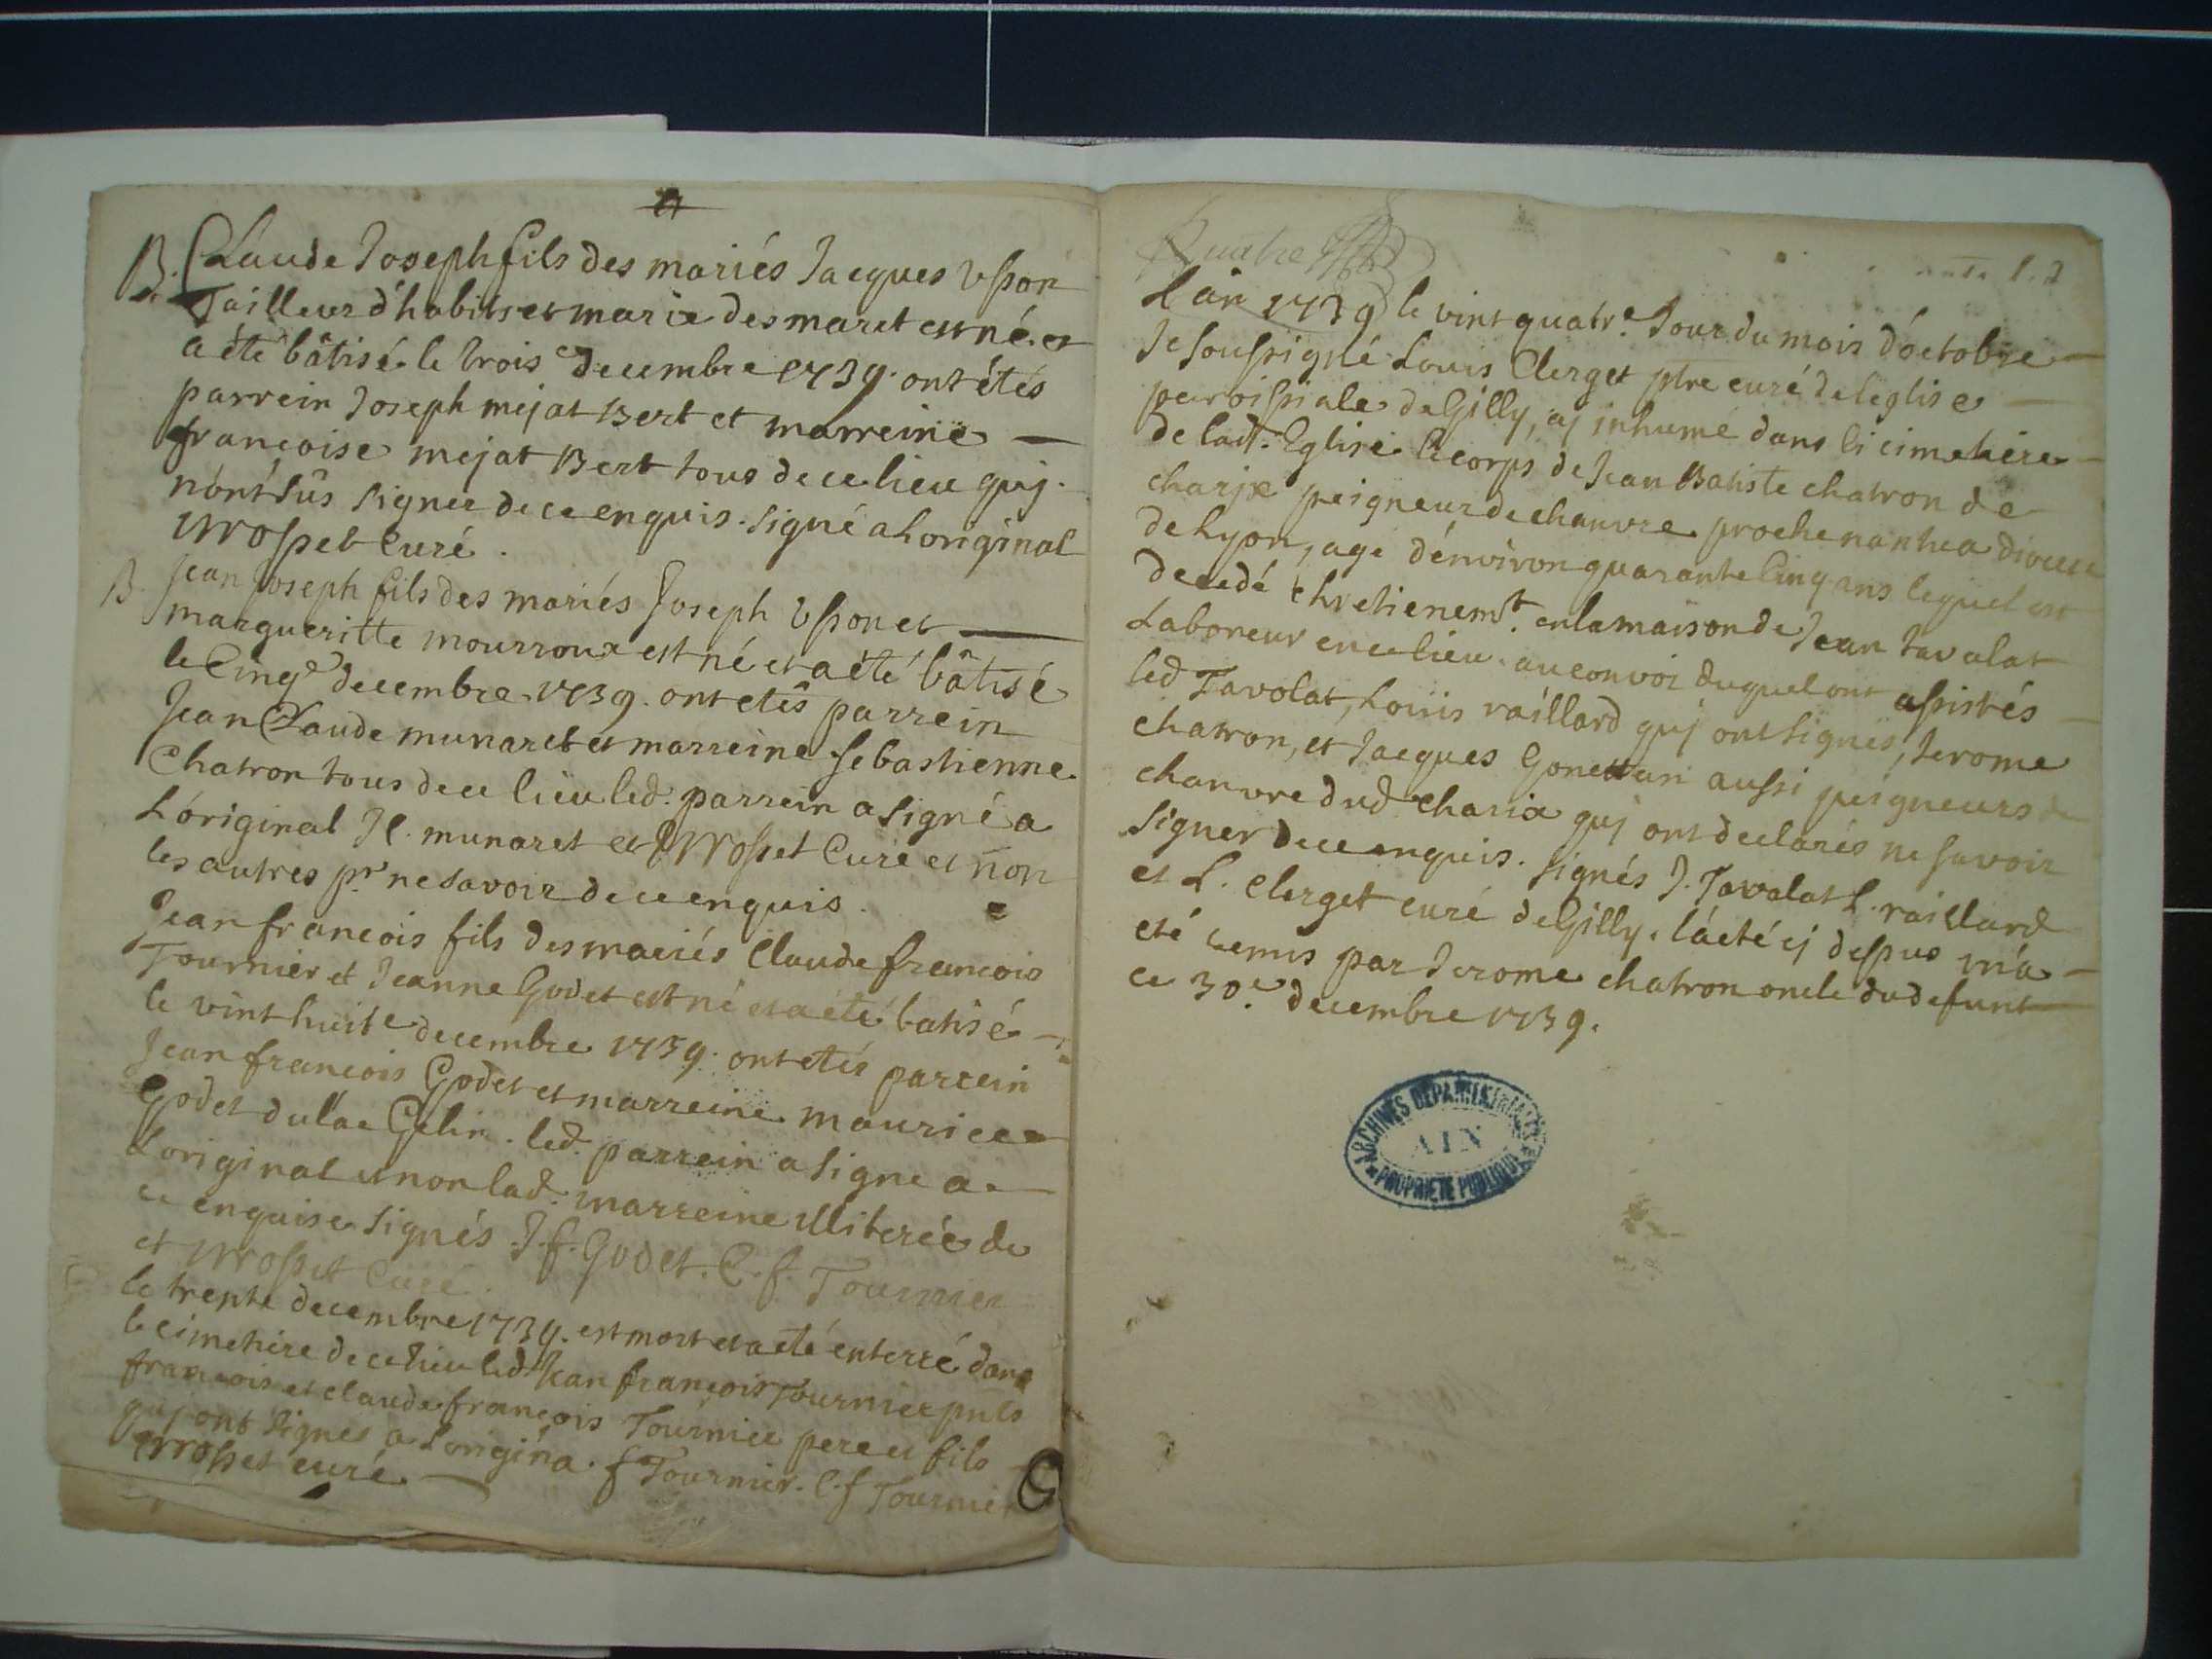 B. Claude Joseph fils des mariés Jacques Usson
Tailleur d'habits et marie desmaret est né et
a été bâtisé le trois.e decembre 1739. ont étés
parrein Joseph mejat Bert et marreine
françoise mejat Bert tous de ce lieu quj
n'ont sûs signer de ce enquis. signé a Loriginal
Mrosset Curé.
B. Jean Joseph fils des mariés Joseph Usson et
margueritte mourroux est né et a été bâtisé
le Cinq.e decembre 1739. ont etés parrein
Jean Claude munaret et marreine sebastienne
Chatron tous de ce lieu led. parrein a signé a
L'original JC. munaret et Mrosset Curé et non
les autres pr. ne savoir de ce enquis.
Jean françois fils des mariés Claude françois
Tournier et Jeanne Godet est né et a été batisé
le vint huit.e decembre 1739. ont etés parrein
Jean françois Godet et marreine maurice
Godet du lac Gelin. led. parrein a signé a
Loriginal et non lad. marreine illiterée de
ce enquise signés J. f. Godet. C. f. Tournier
et Mrosset Curé.
le trente decembre 1739. est mort et a eté enterré dans
le cimetiere de ce lieu led. Jean françois Tournier pnts
françois et claude françois Tournier pere et fils
quj ont signés a Lorigina. f Tournier. C. f Tournier
Mrosset curé.
Quatre
L'an 1739 le vint quatr.e Jour du mois d'octobre
Je soussigné Louis Clerget ptre curé de leglise
paroissiale de Gilly, aj inhumé dans li cimetiere
de ladt. Eglise le corps de Jean Batiste chatron de
charix peigneur de chanvre proche nantua diocese
de Lyon, agé d'environ quarante Cinq ans lequel est
decedé chretienemt. en la maison de Jean tavalat
Laboneur en ce lieu. au convoi duquel ont assistés
led Tavolat, Louis raillard quj ont signés, Jerome
chatron, et Jacques Gonettan aussi peigneurs de
chanvre dud Charix quj ont declarés ne savoir
signer de ce enquis. signés J. Tavalat L. raillard
et L. Clerget curé de Gilly. lácté cj dessus m'a
eté remis par Jerome chatron oncle du defunt
ce 30.e decembre 1739.
ARCHIVES DEPARTEMENTALES
AIN
PROPRIETE PUBLIQUE